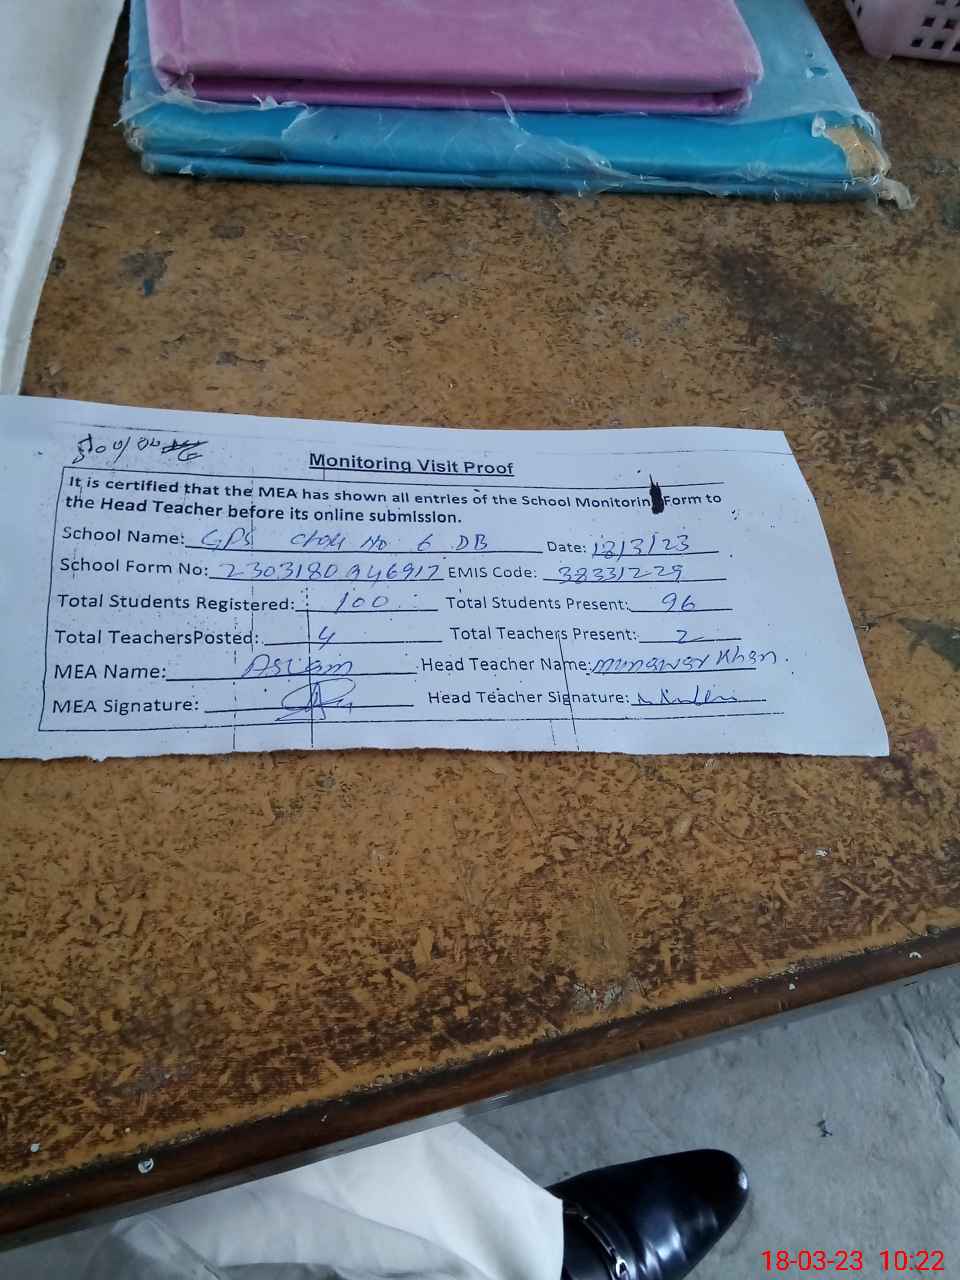 Monitoring Visit Proof
It is certified that the MEA has shown all entries of the School Monitoring Form to
the Head Teacher before its online submission.
School Name: GPS Chak No 6 DB Date: 18/3/23
School Form No: 2303180946917 EMIS Code: 38331229
Total Students Registered: 100 Total Students Present: 96
Total TeachersPosted: 4 Total Teachers Present: 2
MEA Name: Aslam Head Teacher Name: Munawar Khan.
MEA Signature: Head Teacher Signature:
18-03-23 10:22